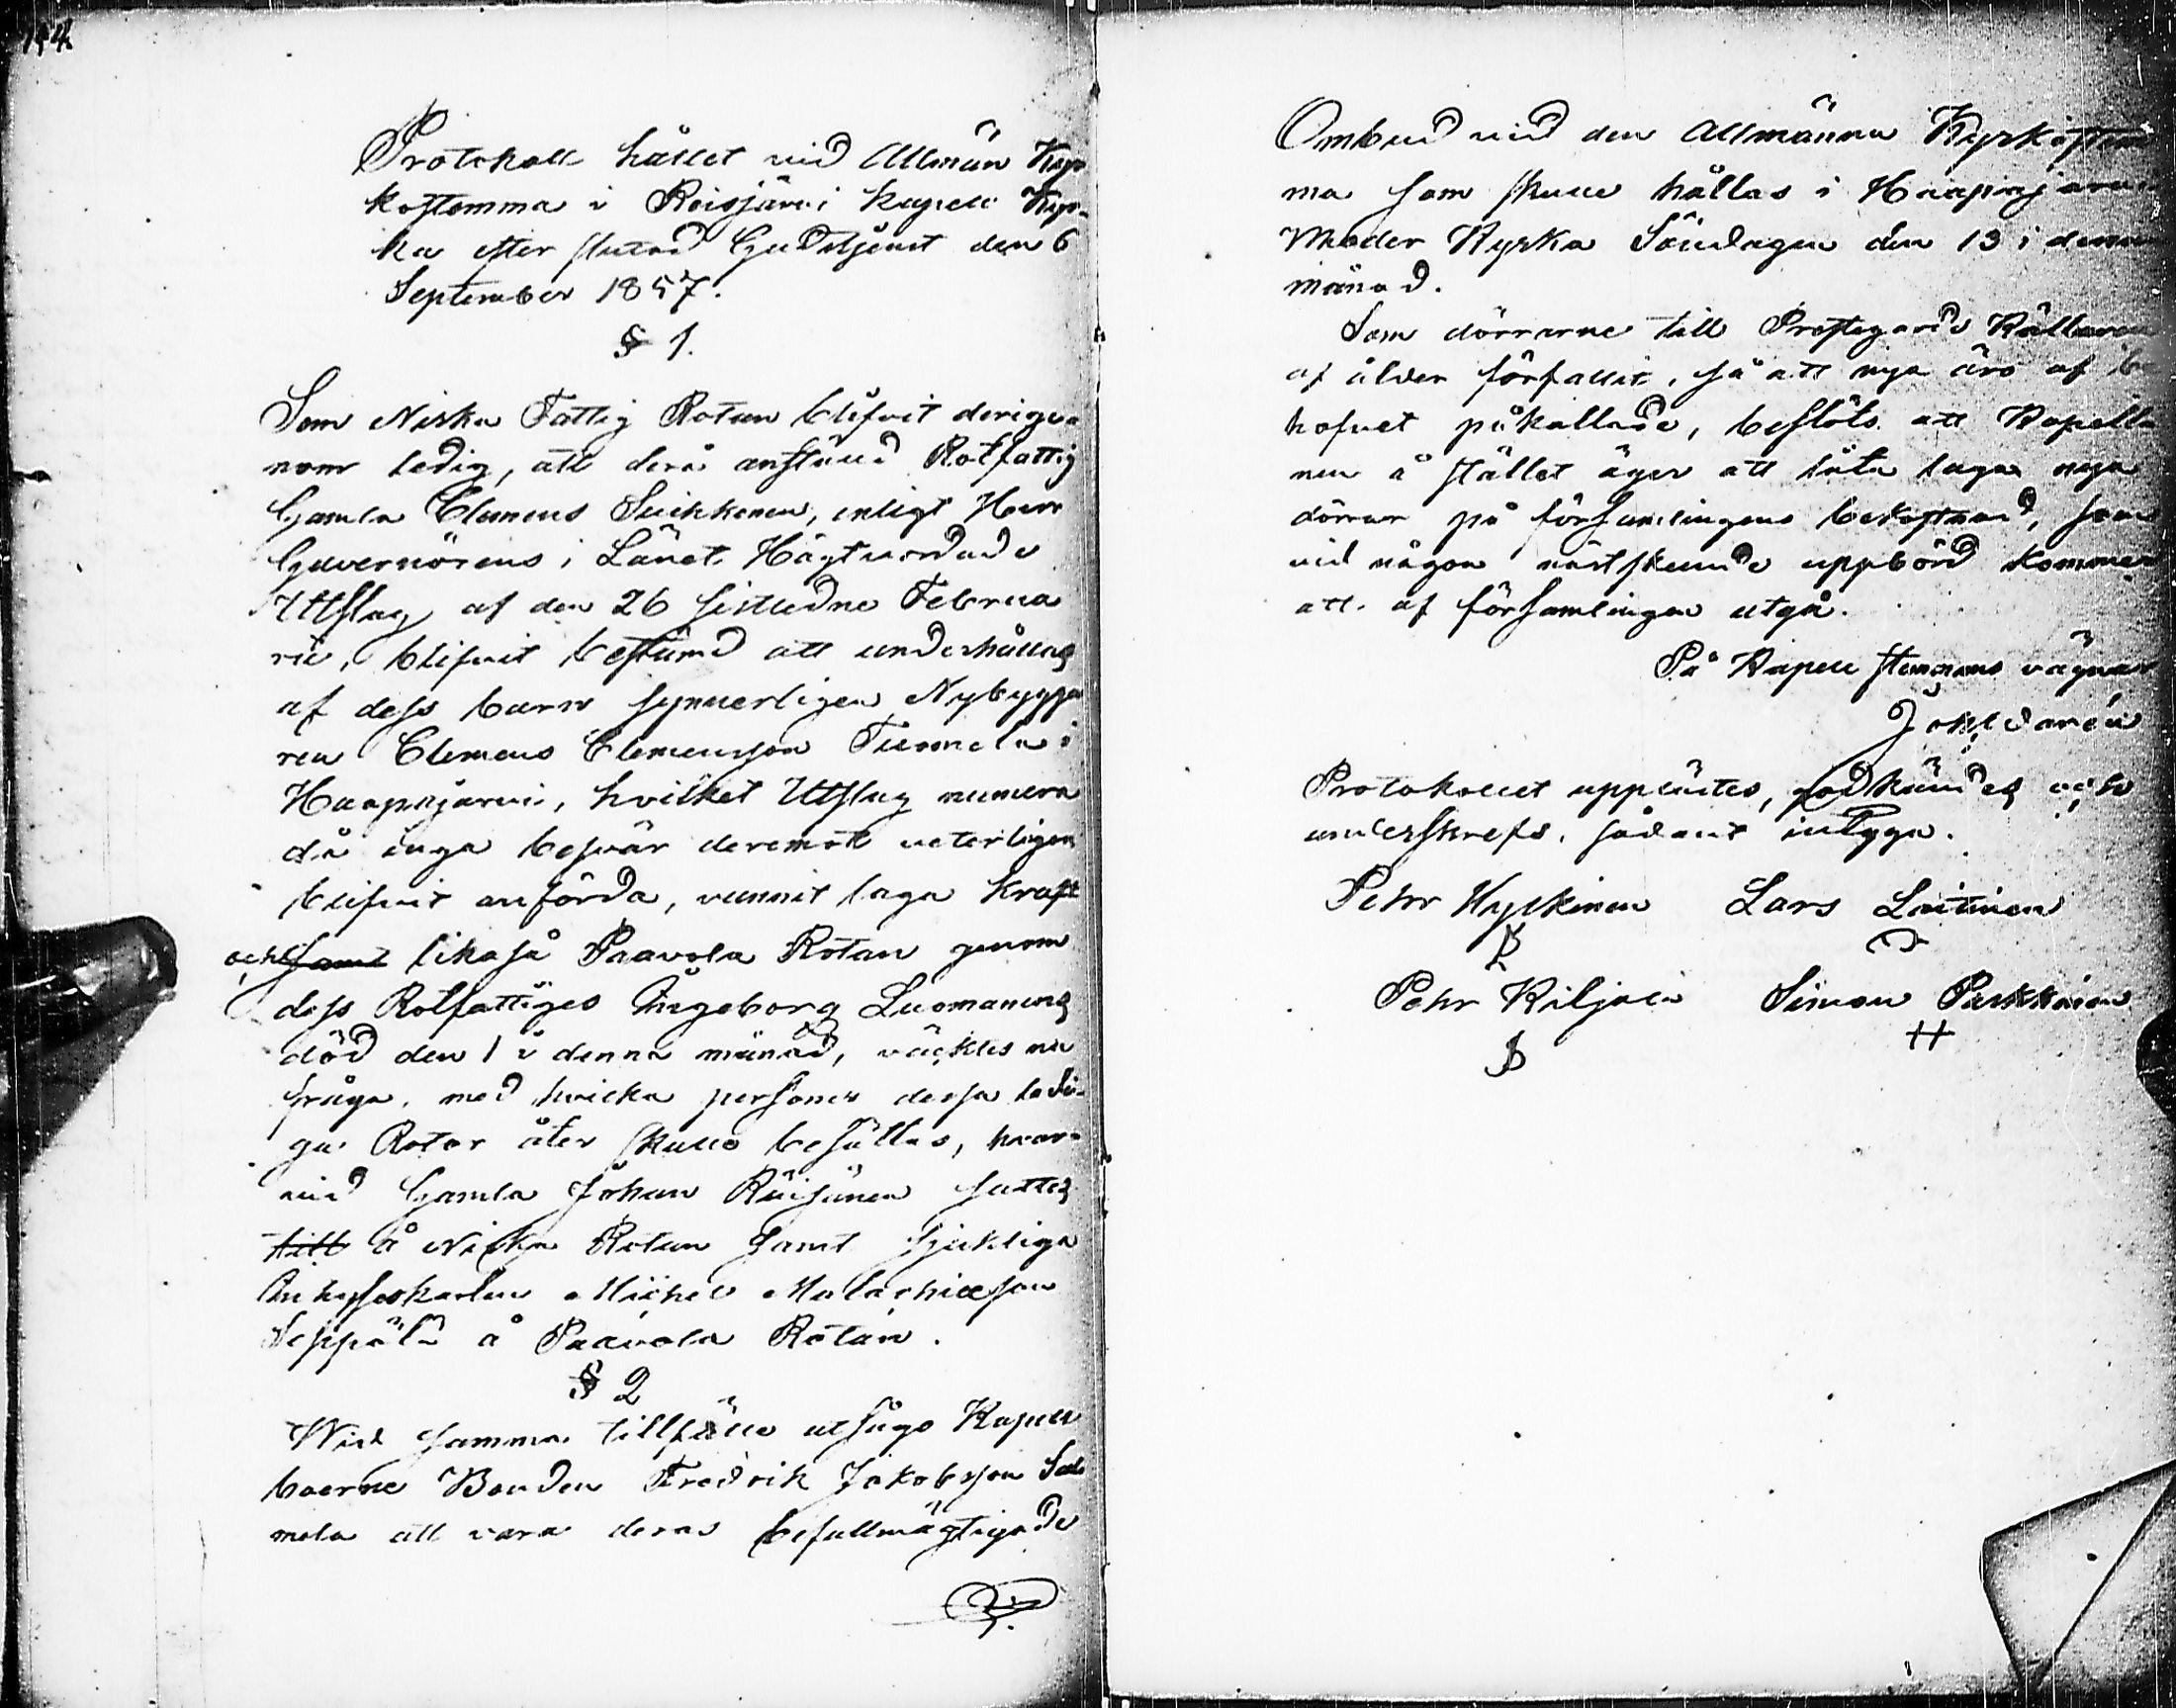 144
Protokoll hållet vid Allmän Kyr
kostemma i Reisjärvi Kapell Kyr-
ka efter slutad Gudstjenst den 6
September 1857.
§ 1.
Som Niska Fattig Rotan blifvit derige-
nom ledig, att derå anstånd Rotfattig
Gamla Clemens Suikkonen, enligt Herr
Guvernörens i Länet Högtvördade
Utslag af den 26 sistledne Februa
rii, blifvit bestämd att underhållas
af dess barn synnerligen Nybygga
ren Clemens Clemensson Tuomela i
Haapajärvi, hvilket Utslag numera
då inga besvär deremot veterligen
blifvit anförda, vunnit laga kraft
och samt likaså Paavola Rotan genom
dess Rotfattiges Ingeborg Luomanens
död den 1 i denna månad, väcktes nu
fråga, med hvilka personer dessa ledi-
ga Rotor åter skulle besättas, hvar-
vid Gamla Johan Räisänen sattes
till å Niska Rotan samt sjukliga
Inhyseskarlen Michel Malachiæson
Seppälä å Paavola Rotan.
§ 2
Wid samma tillfälle utsågo Kapell
boerne Bonden Fredrik Jakobsson Sal
mela att vara deras befullmägtigade
Ombud vid den Allmänna Kyrkostem
ma som skulle hållas i Haapajärvi
Moder Kyrka Söndagen den 13 i denna
månad.
Som dörrarne till Prestgårds Källaren
af ålder förfallit, så att nya äro af be
hofvet påkallade, beslöts att Kapella
nen å stället äger att låta laga nya
dörrar på församlingens bekostnad, som
vid någon nästskeende uppbörd kommer
att af församlingen utgå.
På Kapell stemmans vägnar
Protokollet upplästes, godkändes och
underskrefs, sådant intyga.
Pehr Hyrkinen Lars Laitinen
Pehr Kiljala Simon Parkkinen